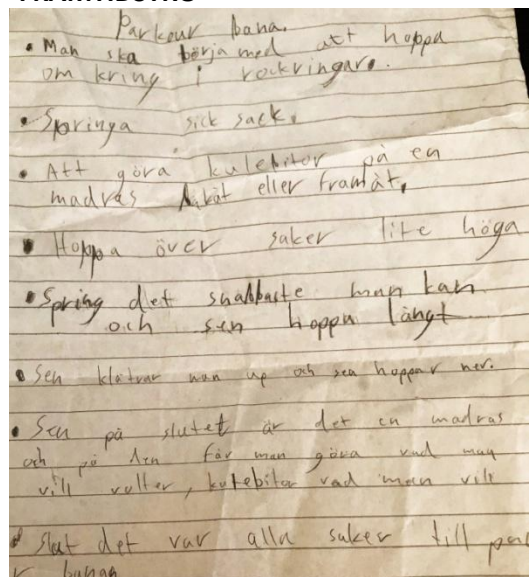 Parkour bana.
• Man ska börja med att hoppa
om kring i rockringar.
• Springa sick sack.
• Att göra kulebitor på en
madras bakåt eller framåt,
• Hoppa över saker lite höga
• Spring det snabbaste man kan
och sen hoppa långt
• Sen klätrar man up och sen hoppar ner.
• Sen på slutet är det en madras
och på den får man göra vad man
vill volter, kulebitor vad man vill
• Slut det var alla saker till par
r banan